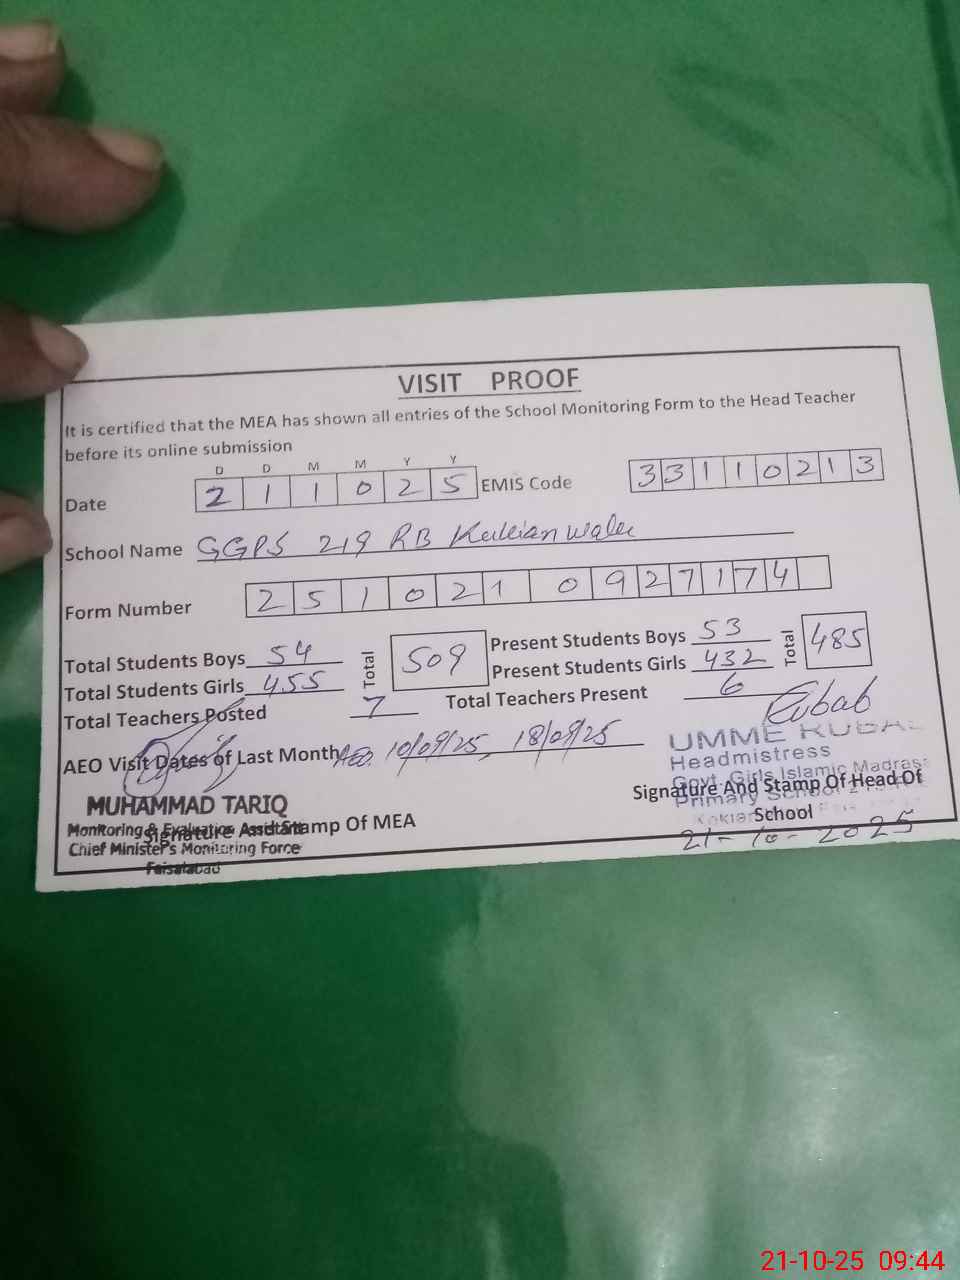 VISIT PROOF
It is certified that the MEA has shown all entries of the School Monitoring Form to the Head Teacher
before its online submission
D D M M Y Y
Date 2 1 1 0 2 5 EMIS Code 3 3 1 1 0 2 1 3
School Name GGPS 219 RB
Form Number 2 5 1 0 2 1 0 9 2 7 1 7 4
Total Students Boys 54 Total 509 Present Students Boys 53 Total 485
Total Students Girls 455 Present Students Girls 432
Total Teachers Posted 7 Total Teachers Present 6
Rubab
AEO Visit Dates of Last Month AEO. 10/09/25, 18/09/25
UMME RUBAB
Headmistress
Govt. Girls Islamic Madrasa
Primary School
Signature And Stamp Of Head Of
School
21-10-2025
MUHAMMAD TARIQ
Monitoring & Evaluation Assistant
Signature And Stamp Of MEA
Chief Minister's Monitoring Force
Faisalabad
21-10-25 09:44